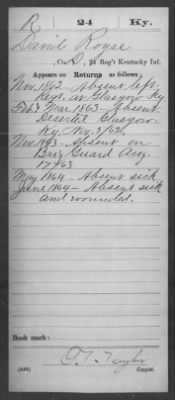 R 24 Ky.
David Royse
Co. D, 24 Reg't Kentucky Inf.
Appears on Returns as follows:
Nov. 1862 Absent left
Regt. at Glasgow Ky
Feb. & Mar. 1863 - Absent
Deserted Glasgow
Ky. Nov. 3/62.
Nov. 1863 - Absent on
Brig Guard Aug.
17/63.
May 1864 - Absent sick
June 1864 - Absent sick
and wounded.
Book mark:
Taylor
(546) Copyist.